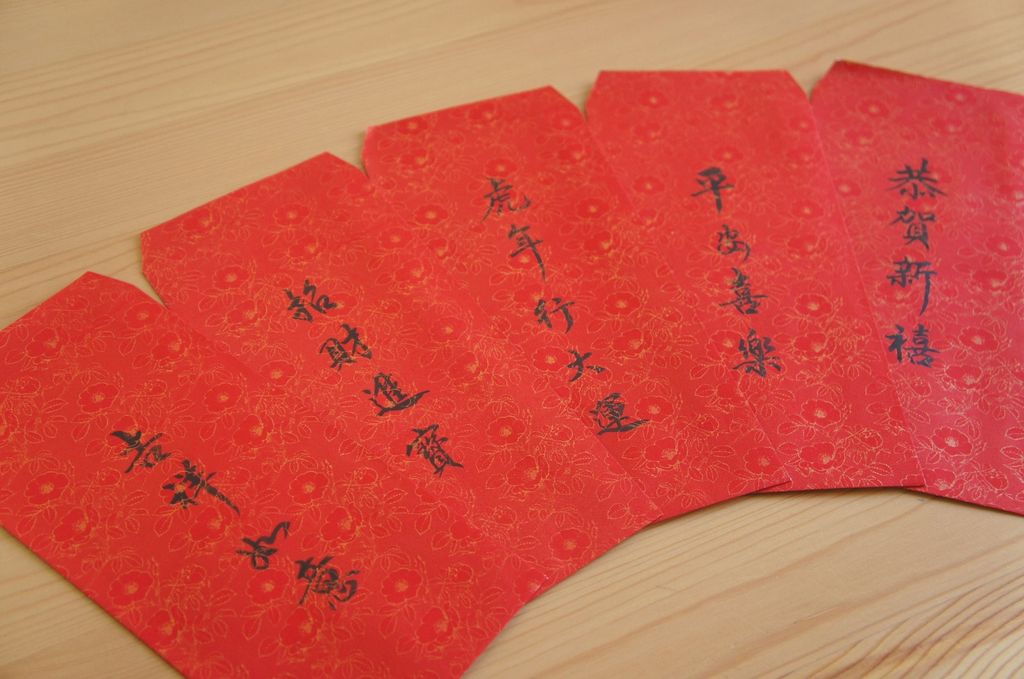 恭賀新禧
平安喜樂
虎年行大運
招財進寶
吉祥如意